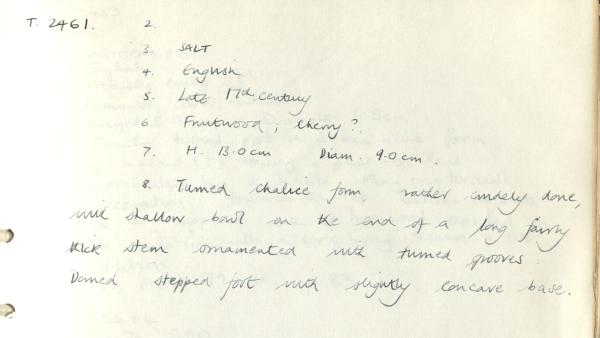 T. 2461. 2.
3. SALT
4. English
5. Late 17th century
6. Fruitwood; cherry?
7. H. 13.0cm Diam. 9.0cm.
8. Turned chalice form, rather crudely done,
with shallow bowl on the end of a long fairly
thick stem ornamented with turned grooves.
Domed stepped foot with slightly concave base.